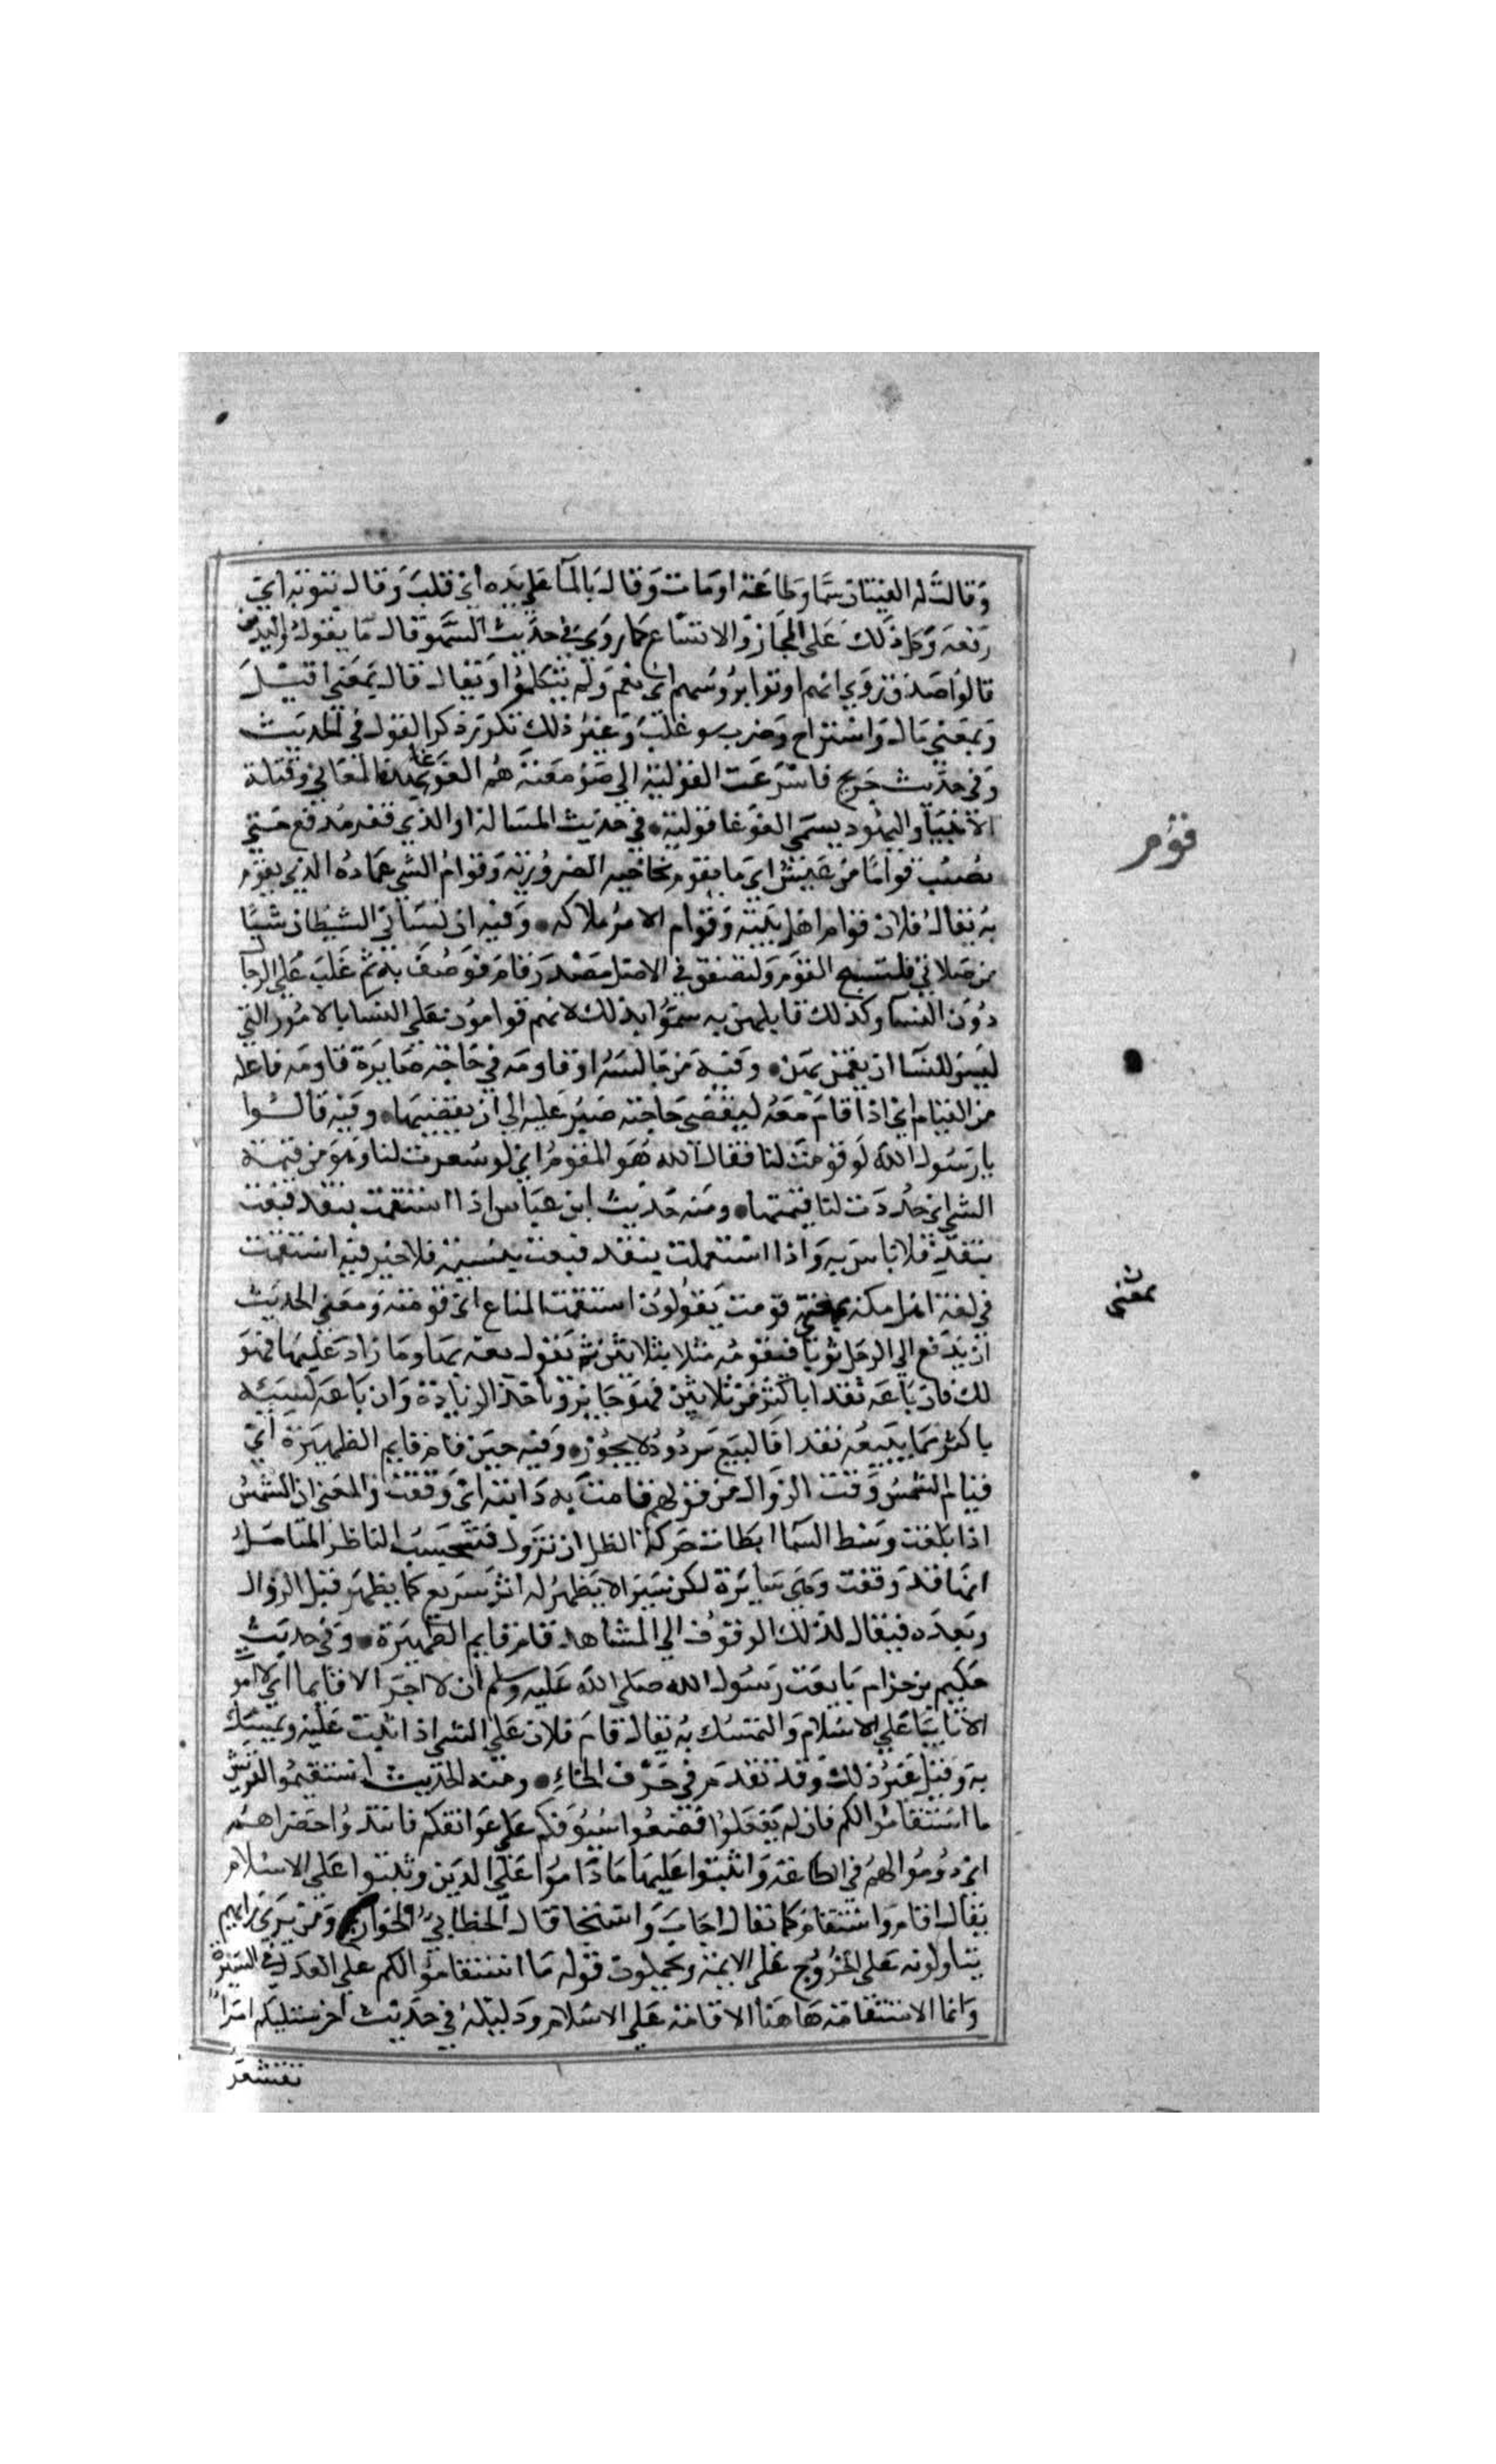 وقالت له العينان سمعا وطاعة اومات وقال بالما علي يده اي قلب وقال بثوبه اي
رفعه وكل ذلك علي المجاز والاتساع كما روي في حديث السهو قال ما يقول ذو اليدين
قالوا صدق روي انهم اوموا برؤسهم اي نعم ولم يتكلموا ويقال قال بمعني اقبل
وبمعني مال واستراح وضرب وغلب وغير ذلك تكرر ذكر القول في الحديث
وفي حديث جريج فاسرعت القولية الي صومعته هم الغوغا وقتلة
الانبيا واليهود يسمي الغوغا قولية في حديث المسالة او الذي فقر مدقع حتي
يصيب قواما من عيش اي ما يقوم بحاجته الضرورية وقوام الشي عماده الذي يقوم
به يقال فلان قوام اهل بيته وقوام الامر ملاكه وفيه ان نساني الشيطان شيا
من صلاتي فليسبح القوم وليصفق في الاصل مصدر قام فوصف به ثم غلب علي الرجال
دون النسا وكذلك قابلهن به سموا بذلك لانهم قوامون علي النسا بالامور التي
ليس للنسا ان يقمن بهن وفيه من جالسه او قاومه في حاجته صابره قاومه فاعله
من القيام اي اذا قام معه ليقضي حاجته صبر عليه الي ان يقضيها وفيه قالوا
يا رسول الله لو قومت لنا فقال الله هو المقوم اي لو سعرت لنا وهو من قيمة
الشي اي حددت لنا قيمتها ومنه حديث ابن عباس اذا استقمت بنقد فبعت
بنقد فلا باس به واذا استقمت بنقد فبعت بنسيئة فلا خير فيه استقمت
في لغة اهل مكة بمعني قومت يقولون استقمت المتاع اي قومته ومعني الحديث
ان يدفع الي الرجل ثوبا فيقومه مثلا بثلاثين ثم يقول بعه بها وما زاد عليها فهو
لك فان باعه نقدا باكثر من ثلاثين فهو جايز وياخذ الزيادة وان باعه نسيئة
باكثر مما يبيعه نقدا فالبيع مردود لا يجوز وفيه حين قام قايم الظهيرة اي
قيام الشمس وقت الزوال من قولهم قامت به دابته اي وقفت والمعني ان الشمس
اذا بلغت وسط السما ابطات حركة الظل ان تزول فتحسب الناظر المتامل
انها قد وقفت وهي سايرة لكن سيرا لا يظهر له اثر سريع كما يظهر قبل الزوال
وبعده فيقال لذلك الوقوف الي المشاهد قام قايم الظهيرة وفي حديث
حكيم بن حزام بايعت رسول الله صلي الله عليه وسلم ان لا اخر الا قايما اي لا اموت
الا ثابتا علي الاسلام والتمسك به يقال قام فلان علي الشي اذا اثبت عليه وتمسك
به وقيل غير ذلك وقد تقدم في حرف الخاء ومنه الحديث استقيموا لقريش
ما استقاموا لكم فان لم يفعلوا فضعوا سيوفكم علي عواتقكم فابيدوا خضراهم
اي دوموا لهم في الطاعة واثبتوا عليها ما داموا علي الدين وثبتوا علي الاسلام
يقال اقام واستقام كما تقال اجاب واستجاب قال الخطابي الخوارج ومن يري رايهم
يتاولونه علي الخروج علي الايمة ويحملون قوله ما استقاموا لكم علي العدل في السيرة
وانما الاستقامة هاهنا الاقامة علي الاسلام ودليله في حديث اخر سيليكم امراء
تقشعر
قوم
بمعني